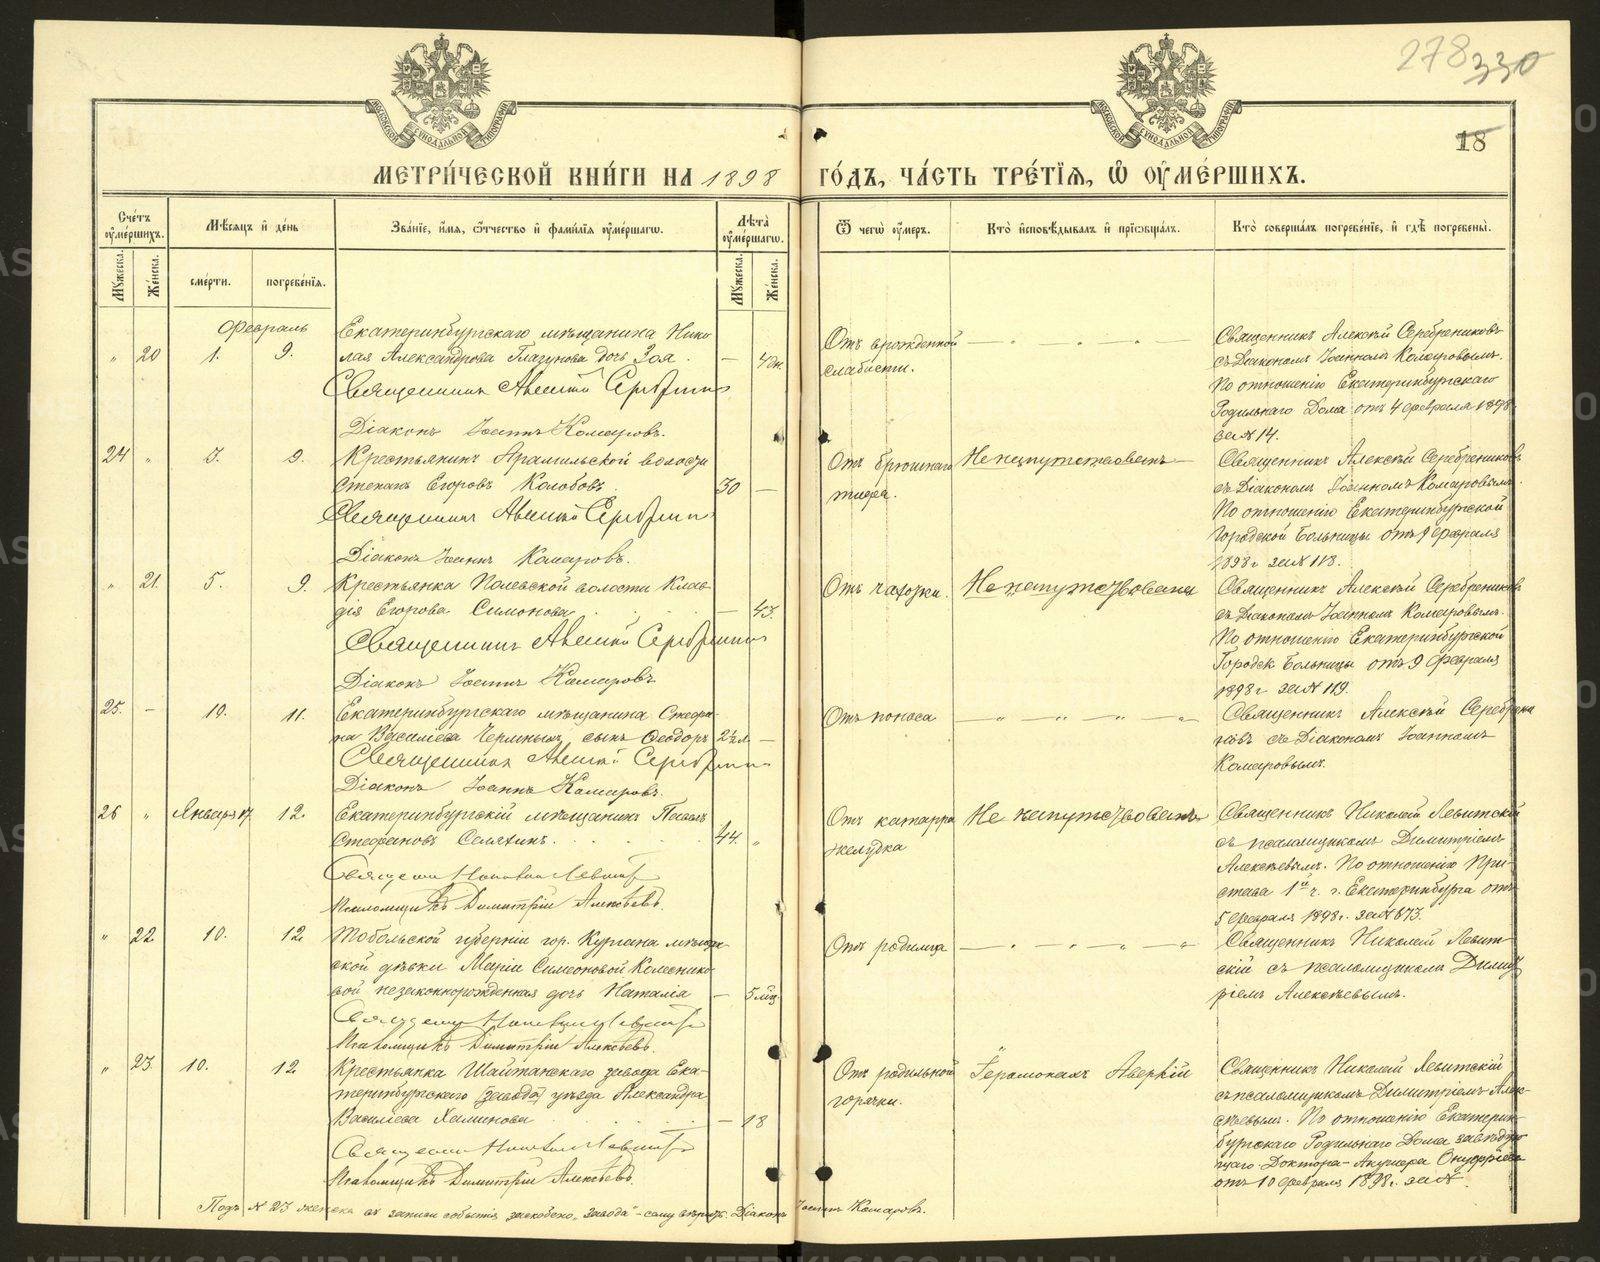 278 330
18
МЕТРИ́ЧЕСКОЙ КНИ́ГИ НА 1898 ГО́ДЪ, ЧА́СТЬ ТРЕ́ТІЯ, Ѡ ОУМЕ́РШИХЪ.
Счетъ оумершихъ.
Мѣсяцъ и день
Званіе, имя, отчество и фамилія оумершагω.
Лѣта оумершагω.
Ѿ чегω оумеръ.
Кто исповѣдывалъ и пріωбщалъ.
Кто совершалъ погребеніе, и гдѣ погребены.
Мужеска. Женска.
смерти. погребенія.
Мужеска. Женска.
Февраль
" 20 1. 9.
Екатеринбургскаго мѣщанина Нико-
лая Александрова Глазунова дочь Зоя. — 4 дн.
Священникъ Алексій
Діаконъ Іоаннъ Комаровъ.
Отъ врожденной
слабости.
Священникъ Алексѣй Серебрениковъ
съ Діакономъ Іоанномъ Комаровымъ.
По отношенію Екатеринбургскаго
Родильнаго Дома отъ 4 февраля 1898
за № 14.
24 " 9.
Крестьянинъ Арамильской волости
Степанъ Егоровъ Колобовъ. 30 —
Священникъ Алексій
Діаконъ Іоаннъ Комаровъ.
Отъ брюшнаго
тифа.
Не напутствованъ
Священникъ Алексѣй Серебрениковъ
съ Діакономъ Іоанномъ Комаровымъ.
По отношенію Екатеринбургской
Городской Больницы отъ 9 февраля
1898 г за № 118.
" 21. 5. 9.
Крестьянка Полевской волости Клав-
дія Егорова Симонова — 43.
Священникъ Алексій
Діаконъ Іоаннъ Комаровъ
Отъ чахотки.
Не напутствована
Священникъ Алексѣй Серебрениковъ
съ Діакономъ Іоанномъ Комаровымъ.
По отношенію Екатеринбургской
Городск Больницы отъ 9 февраля
1898 г за № 119.
25. — 10. 11.
Екатеринбургскаго мѣщанина Стефа-
на Василіева сынъ Ѳеодоръ 2½ л. —
Священникъ Алексій
Діаконъ Іоаннъ Комаровъ.
Отъ поноса
Священникъ Алексѣй Серебрени
ковъ съ Діакономъ Іоанномъ
Комаровымъ.
26 " Января 17 12.
Екатеринбургскій мѣщанинъ Павелъ
Стефановъ Селянинъ. 44. "
Псаломщикъ Димитрій Алексѣевъ.
Отъ катарра
желудка
Не напутствованъ
Священникъ Николай Левитскій
съ псаломщикомъ Димитріемъ
Алексѣевымъ. По отношенію При-
става 1й ч. г. Екатеринбурга отъ
5 февраля 1898 г. за № 673.
" 22. 10. 12.
Тобольской губерніи гор. Кургана мѣщан-
ской дѣвки Маріи Симеоновой Колеснико-
вой незаконнорожденная дочь Наталія — 5 мц.
Псаломщикъ Димитрій Алексѣевъ.
Отъ родимца
Священникъ Николай Левит-
скій съ псаломщикомъ Димит
ріемъ Алексѣевымъ.
" 23. 10. 12.
Крестьянка Шайтанскаго завода Ека-
теринбургскаго [завода] уѣзда Александра
Василіева Халинова — 18
Псаломщикъ Димитрій Алексѣевъ.
Отъ родильной
горячки.
Іеромонахъ Аверкій
Священникъ Николай Левитскій
съ псаломщикомъ Димитріемъ Алек-
сѣевымъ. По отношенію Екатерин-
бургскаго Родильнаго Дома завѣдую
щаго Доктора-Акушера Онуфріева
отъ 10 февраля 1898 г. за №
Подъ № 23 женска въ записи событія заскоблено „завода" – сему вѣрить. Діаконъ Іоаннъ Комаровъ.